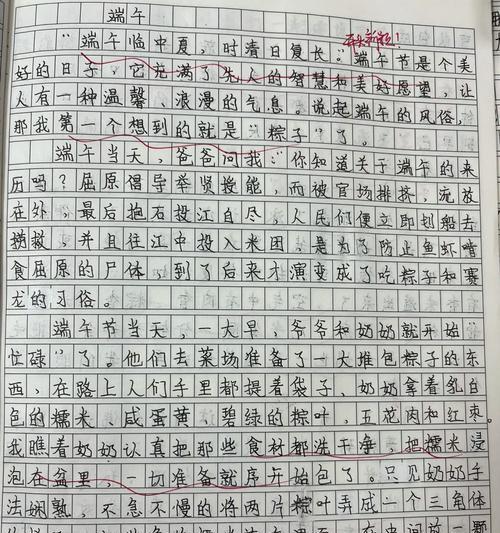 端午
开头新颖!
"端午临中夏,时清日复长。"端午节是个美
好的日子,它充满了先人的智慧和美好愿望,让
人有一种温馨、浪漫的气息。说起端午的风俗,
那我第一个想到的就是"粽子"了。
端午当天,爸爸问我:"你知道关于端午的来
历吗?屈原倡导举贤授能,而被官场排挤,流放
在外,最后抱石投江自尽,人民们便立即划船去
捞救,并且往江中投入米团,是为了防止鱼虾噆
食屈原的尸体,到了后来才演变成了吃粽子和赛
龙的习俗。
端午节当天,一大早,爷爷和奶奶就开始"
忙碌"了。他们去菜场准备了一大堆包粽子的东
西,在路上人们手里都提着袋子,奶奶拿着
包的糯米、咸蛋黄、碧绿的粽叶,五花肉和红枣。
我瞧着奶奶认真把那些食材都洗干净,把糯米浸
泡在盆里,一切准备就序开始包了。只见奶奶手
法娴熟,不急不慢的将两片粽叶弄成一个三角体